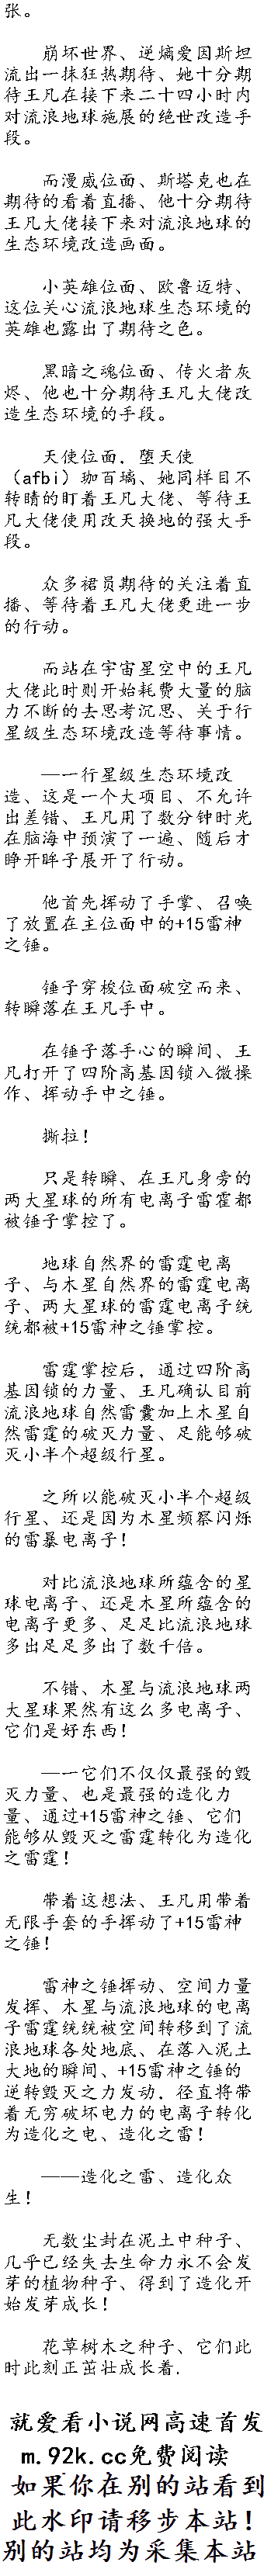 张。
崩坏世界、逆熵爱因斯坦
流出一抹狂热期待、她十分期
待王凡在接下来二十四小时内
对流浪地球施展的绝世改造手
段。
而漫威位面、斯塔克也在
期待的看着直播、他十分期待
王凡大佬接下来对流浪地球的
生态环境改造画面。
小英雄位面、欧鲁迈特、
这位关心流浪地球生态环境的
英雄也露出了期待之色。
黑暗之魂位面、传火者灰
烬、他也十分期待王凡大佬改
造生态环境的手段。
天使位面，堕天使
（afbi）珈百璃、她同样目不
转睛的盯着王凡大佬、等待王
凡大佬使用改天换地的强大手
段。
众多裙员期待的关注着直
播、等待着王凡大佬更进一步
的行动。
而站在宇宙星空中的王凡
大佬此时则开始耗费大量的脑
力不断的去思考沉思、关于行
星级生态环境改造等待事情。
—一行星级生态环境改
造、这是一个大项目、不允许
出差错、王凡用了数分钟时光
在脑海中预演了一遍、随后才
睁开眸子展开了行动。
他首先挥动了手掌、召唤
了放置在主位面中的+15雷神
之锤。
锤子穿梭位面破空而来、
转瞬落在王凡手中。
在锤子落手心的瞬间、王
凡打开了四阶高基因锁入微操
作、挥动手中之锤。
撕拉！
只是转瞬、在王凡身旁的
两大星球的所有电离子雷霆都
被锤子掌控了。
地球自然界的雷霆电离
子、与木星自然界的雷霆电离
子、两大星球的雷霆电离子统
统都被+15雷神之锤掌控。
雷霆掌控后，通过四阶高
基因锁的力量、王凡确认目前
流浪地球自然雷囊加上木星自
然雷霆的破灭力量、足能够破
灭小半个超级行星。
之所以能破灭小半个超级
行星、还是因为木星频察闪烁
的雷暴电离子！
对比流浪地球所蕴含的星
球电离子、还是木星所蕴含的
电离子更多、足足比流浪地球
多出足足多出了数千倍。
不错、木星与流浪地球两
大星球果然有这么多电离子、
它们是好东西！
—一它们不仅仅最强的毁
灭力量、也是最强的造化力
量、通过+15雷神之锤、它们
能够从毁灭之雷霆转化为造化
之雷霆！
带着这想法、王凡用带着
无限手套的手挥动了+15雷神
之锤！
雷神之锤挥动、空间力量
发挥、木星与流浪地球的电离
子雷霆统统被空间转移到了流
浪地球各处地底、在落入泥土
大地的瞬间、+15雷神之锤的
逆转毁灭之力发动，径直将带
着无穷破坏电力的电离子转化
为造化之电、造化之雷！
——造化之雷、造化众
生！
无数尘封在泥土中种子、
几乎已经失去生命力永不会发
芽的植物种子、得到了造化开
始发芽成长！
花草树木之种子、它们此
时此刻正茁壮成长着．
就爱看小说网高速首发
m.92k.cc免费阅读
如果你在别的站看到
此水印请移步本站！
别的站均为采集本站